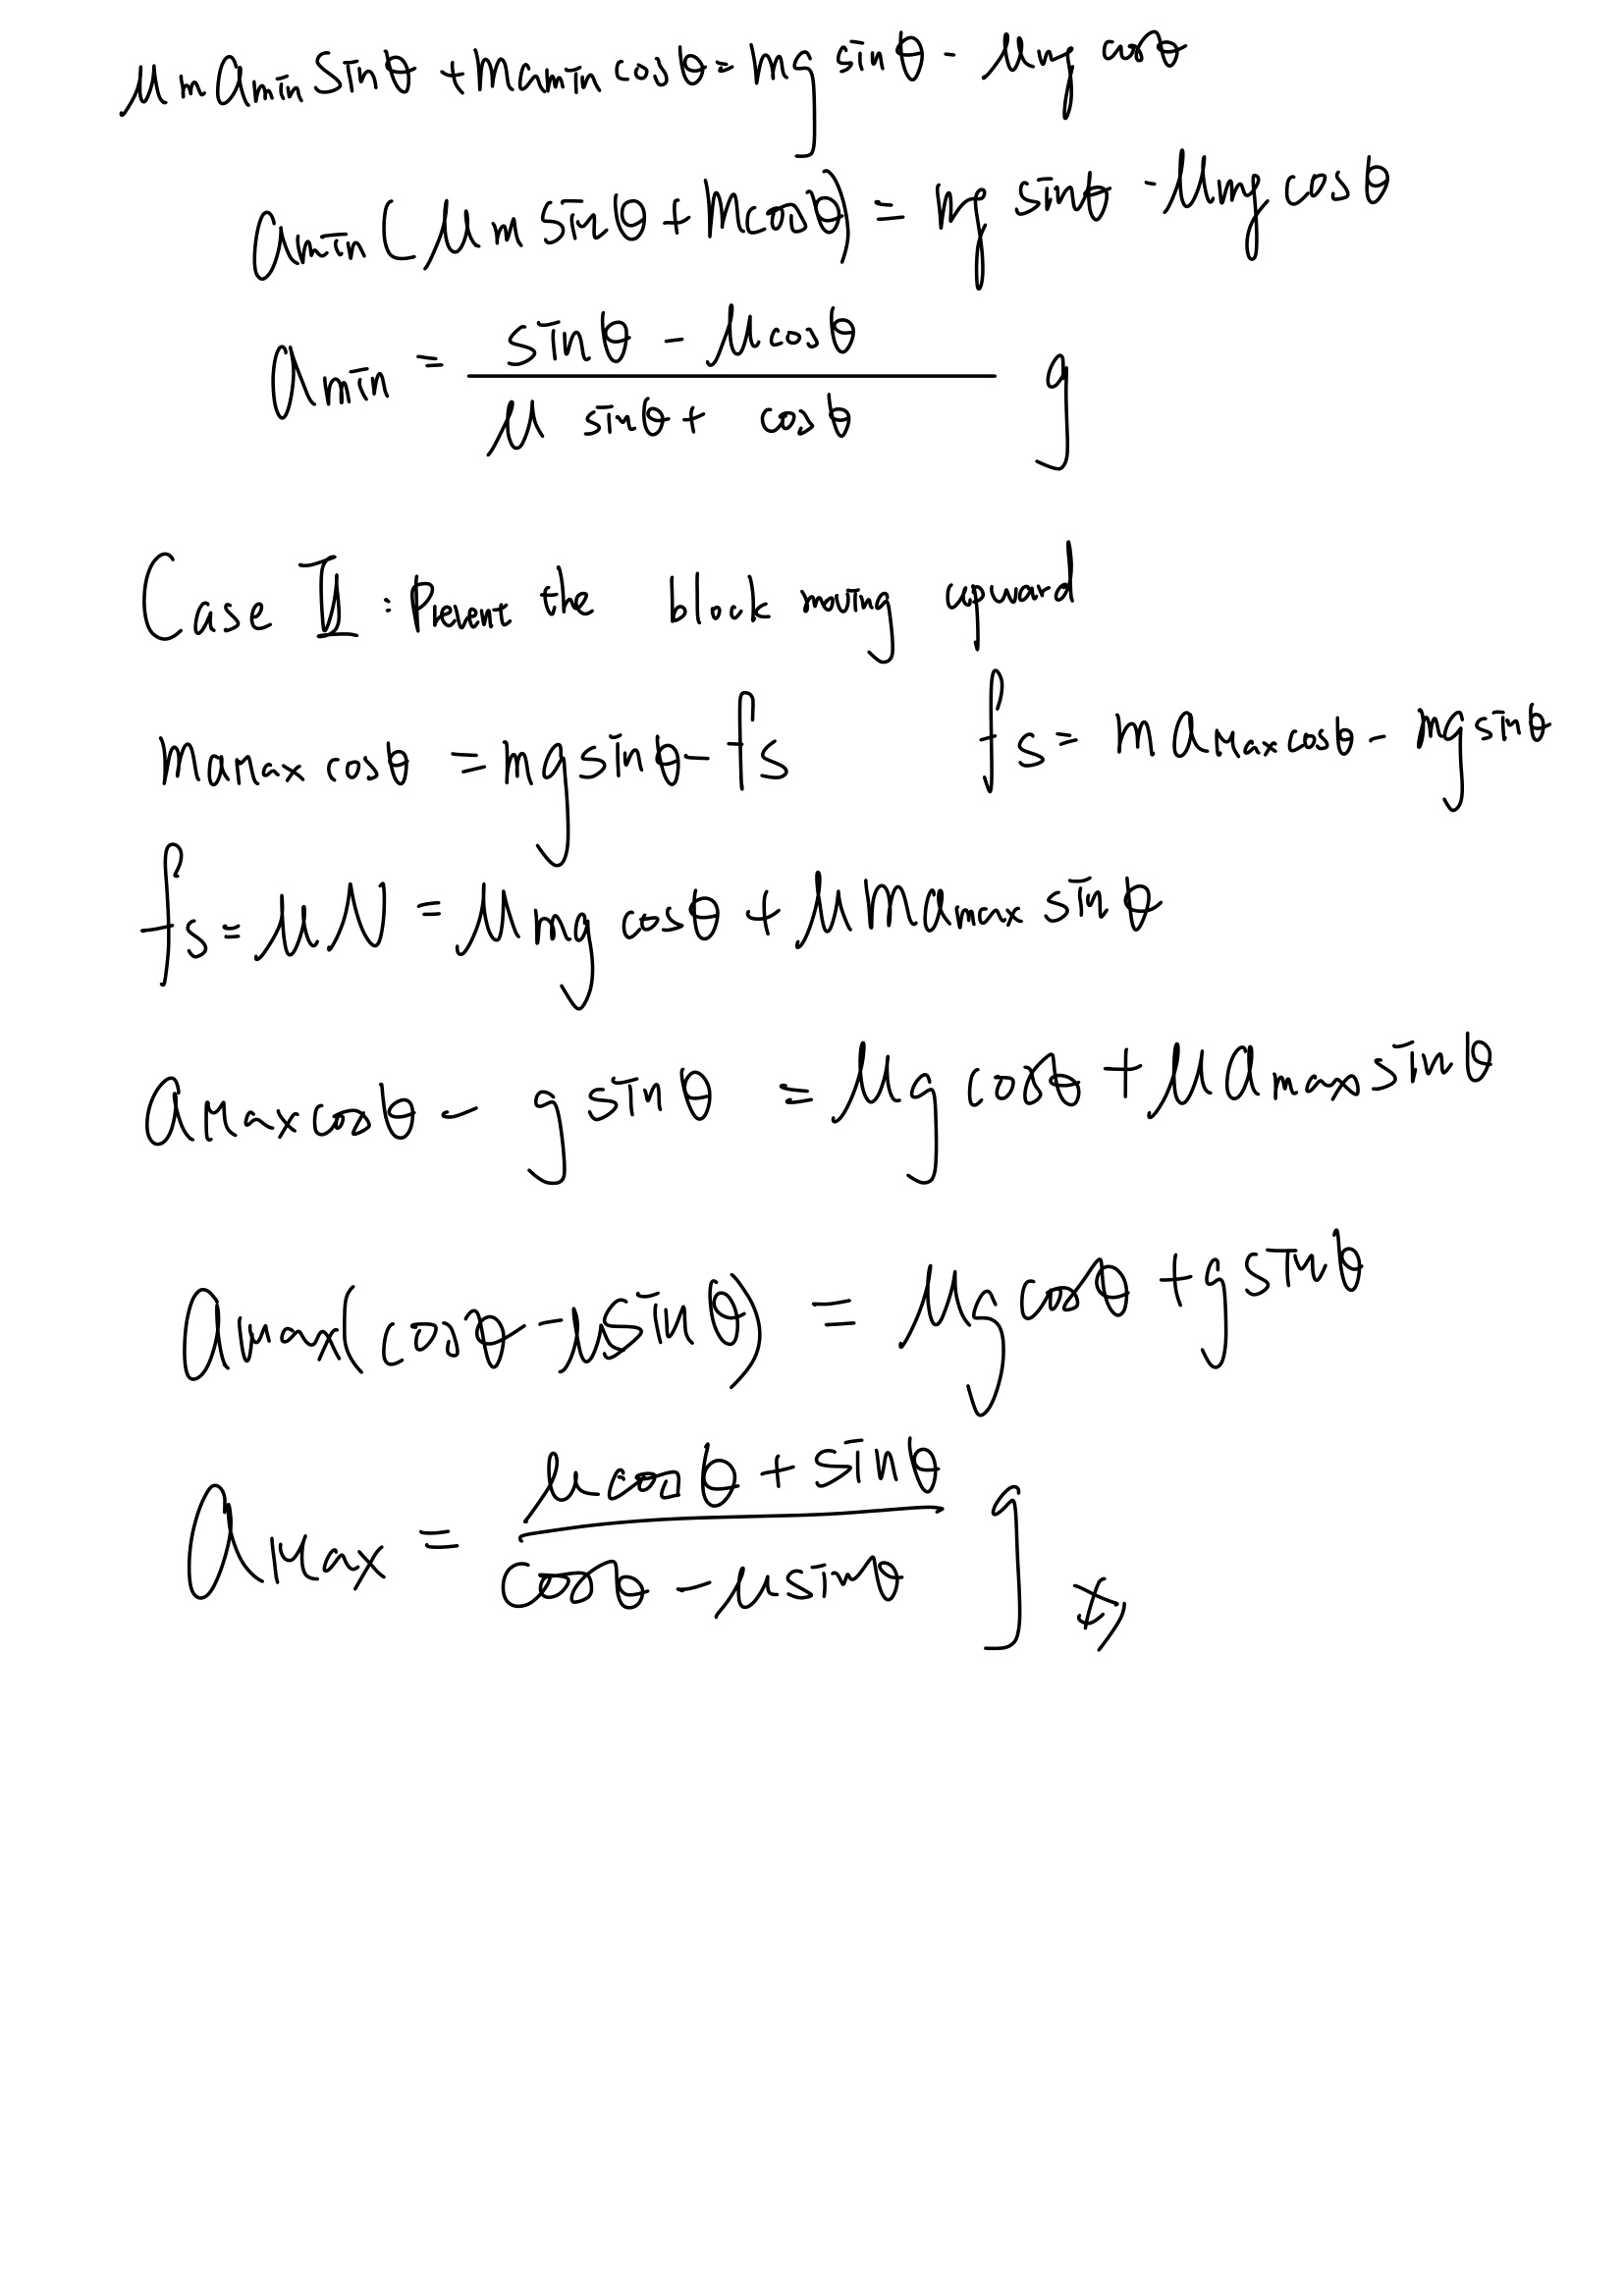 μm a_min sinθ + m a_min cosθ = mg sinθ - μmg cosθ
a_min (μm sinθ + m cosθ) = mg sinθ - μmg cosθ
a_min = (sinθ - μcosθ) / (μ sinθ + cosθ) g
Case II : Prevent the block moving upward
m a_max cosθ = mg sinθ - fs    fs = m a_max cosθ - mg sinθ
fs = μN = μmg cosθ + μm a_max sinθ
a_max cosθ - g sinθ = μg cosθ + μ a_max sinθ
a_max (cosθ - μsinθ) = μg cosθ + g sinθ
a_max = (μcosθ + sinθ) / (cosθ - μsinθ) g